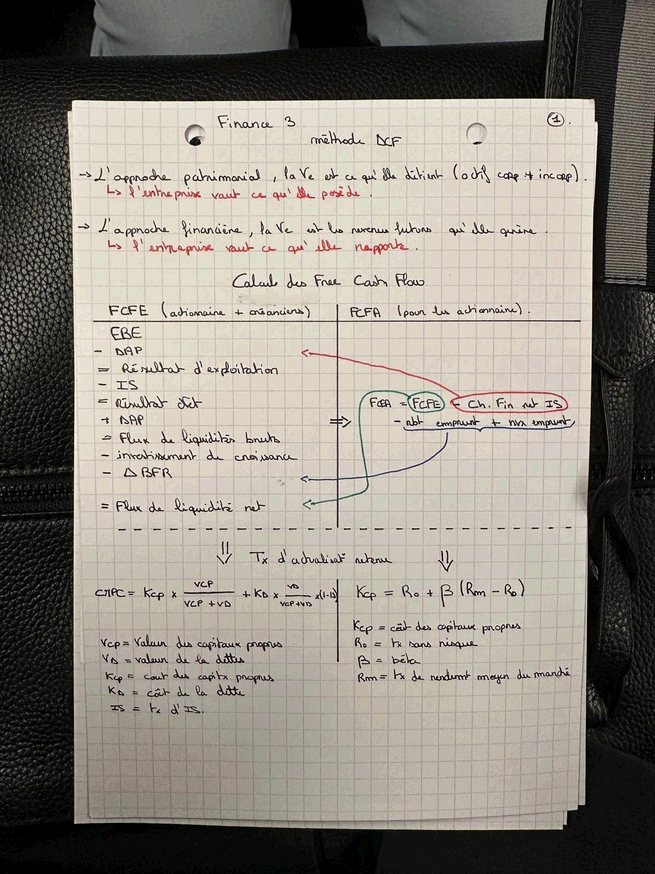 Finance 3
①.
méthode DCF
→ L'approche patrimonial, la Ve est ce qu'elle détient (actif corp + incorp).
↳ l'entreprise vaut ce qu'elle possède.
→ L'approche financière, la Ve est les revenus futurs qu'elle génère.
↳ l'entreprise vaut ce qu'elle rapporte.
Calculs des Free Cash Flow
FCFE (actionnaire + créanciers)
EBE
- DAP
= Résultat d'exploitation
- IS
= Résultat
+ DAP
= Flux de liquidités bruts
- investissement de croissance
- Δ BFR
= Flux de liquidité net
FCFA (pour les actionnaire).
⇒ FCFA = FCFE - Ch. Fin net IS
- rbt emprunt + nvx emprunt
⇓ Tx d'actualisat° retenue ⇓
CMPC = Kcp x VCP / VCP + VD + KD x VD / VCP+VD x(1-IS)
VCP = Valeur des capitaux propres
VD = valeur de la dettes
Kcp = cout des capitx propres
KD = coût de la dette
IS = tx d'IS.
Kcp = Ro + β (Rm - Ro)
Kcp = coût des capitaux propres
Ro = tx sans risque
β = bêta
Rm = tx de rendemt moyen du marché